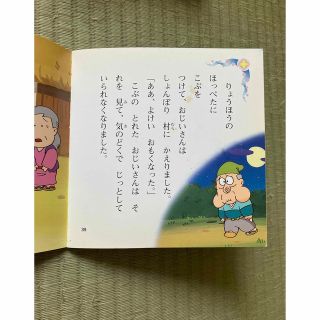 りょうほうの
ほっぺたに
こぶを
つけて、おじいさんは
しょんぼり 村に かえりました。
「ああ、よけい おもくなった。」
こぶの とれた おじいさんは そ
れを 見て、気のどくで じっとして
いられなくなりました。